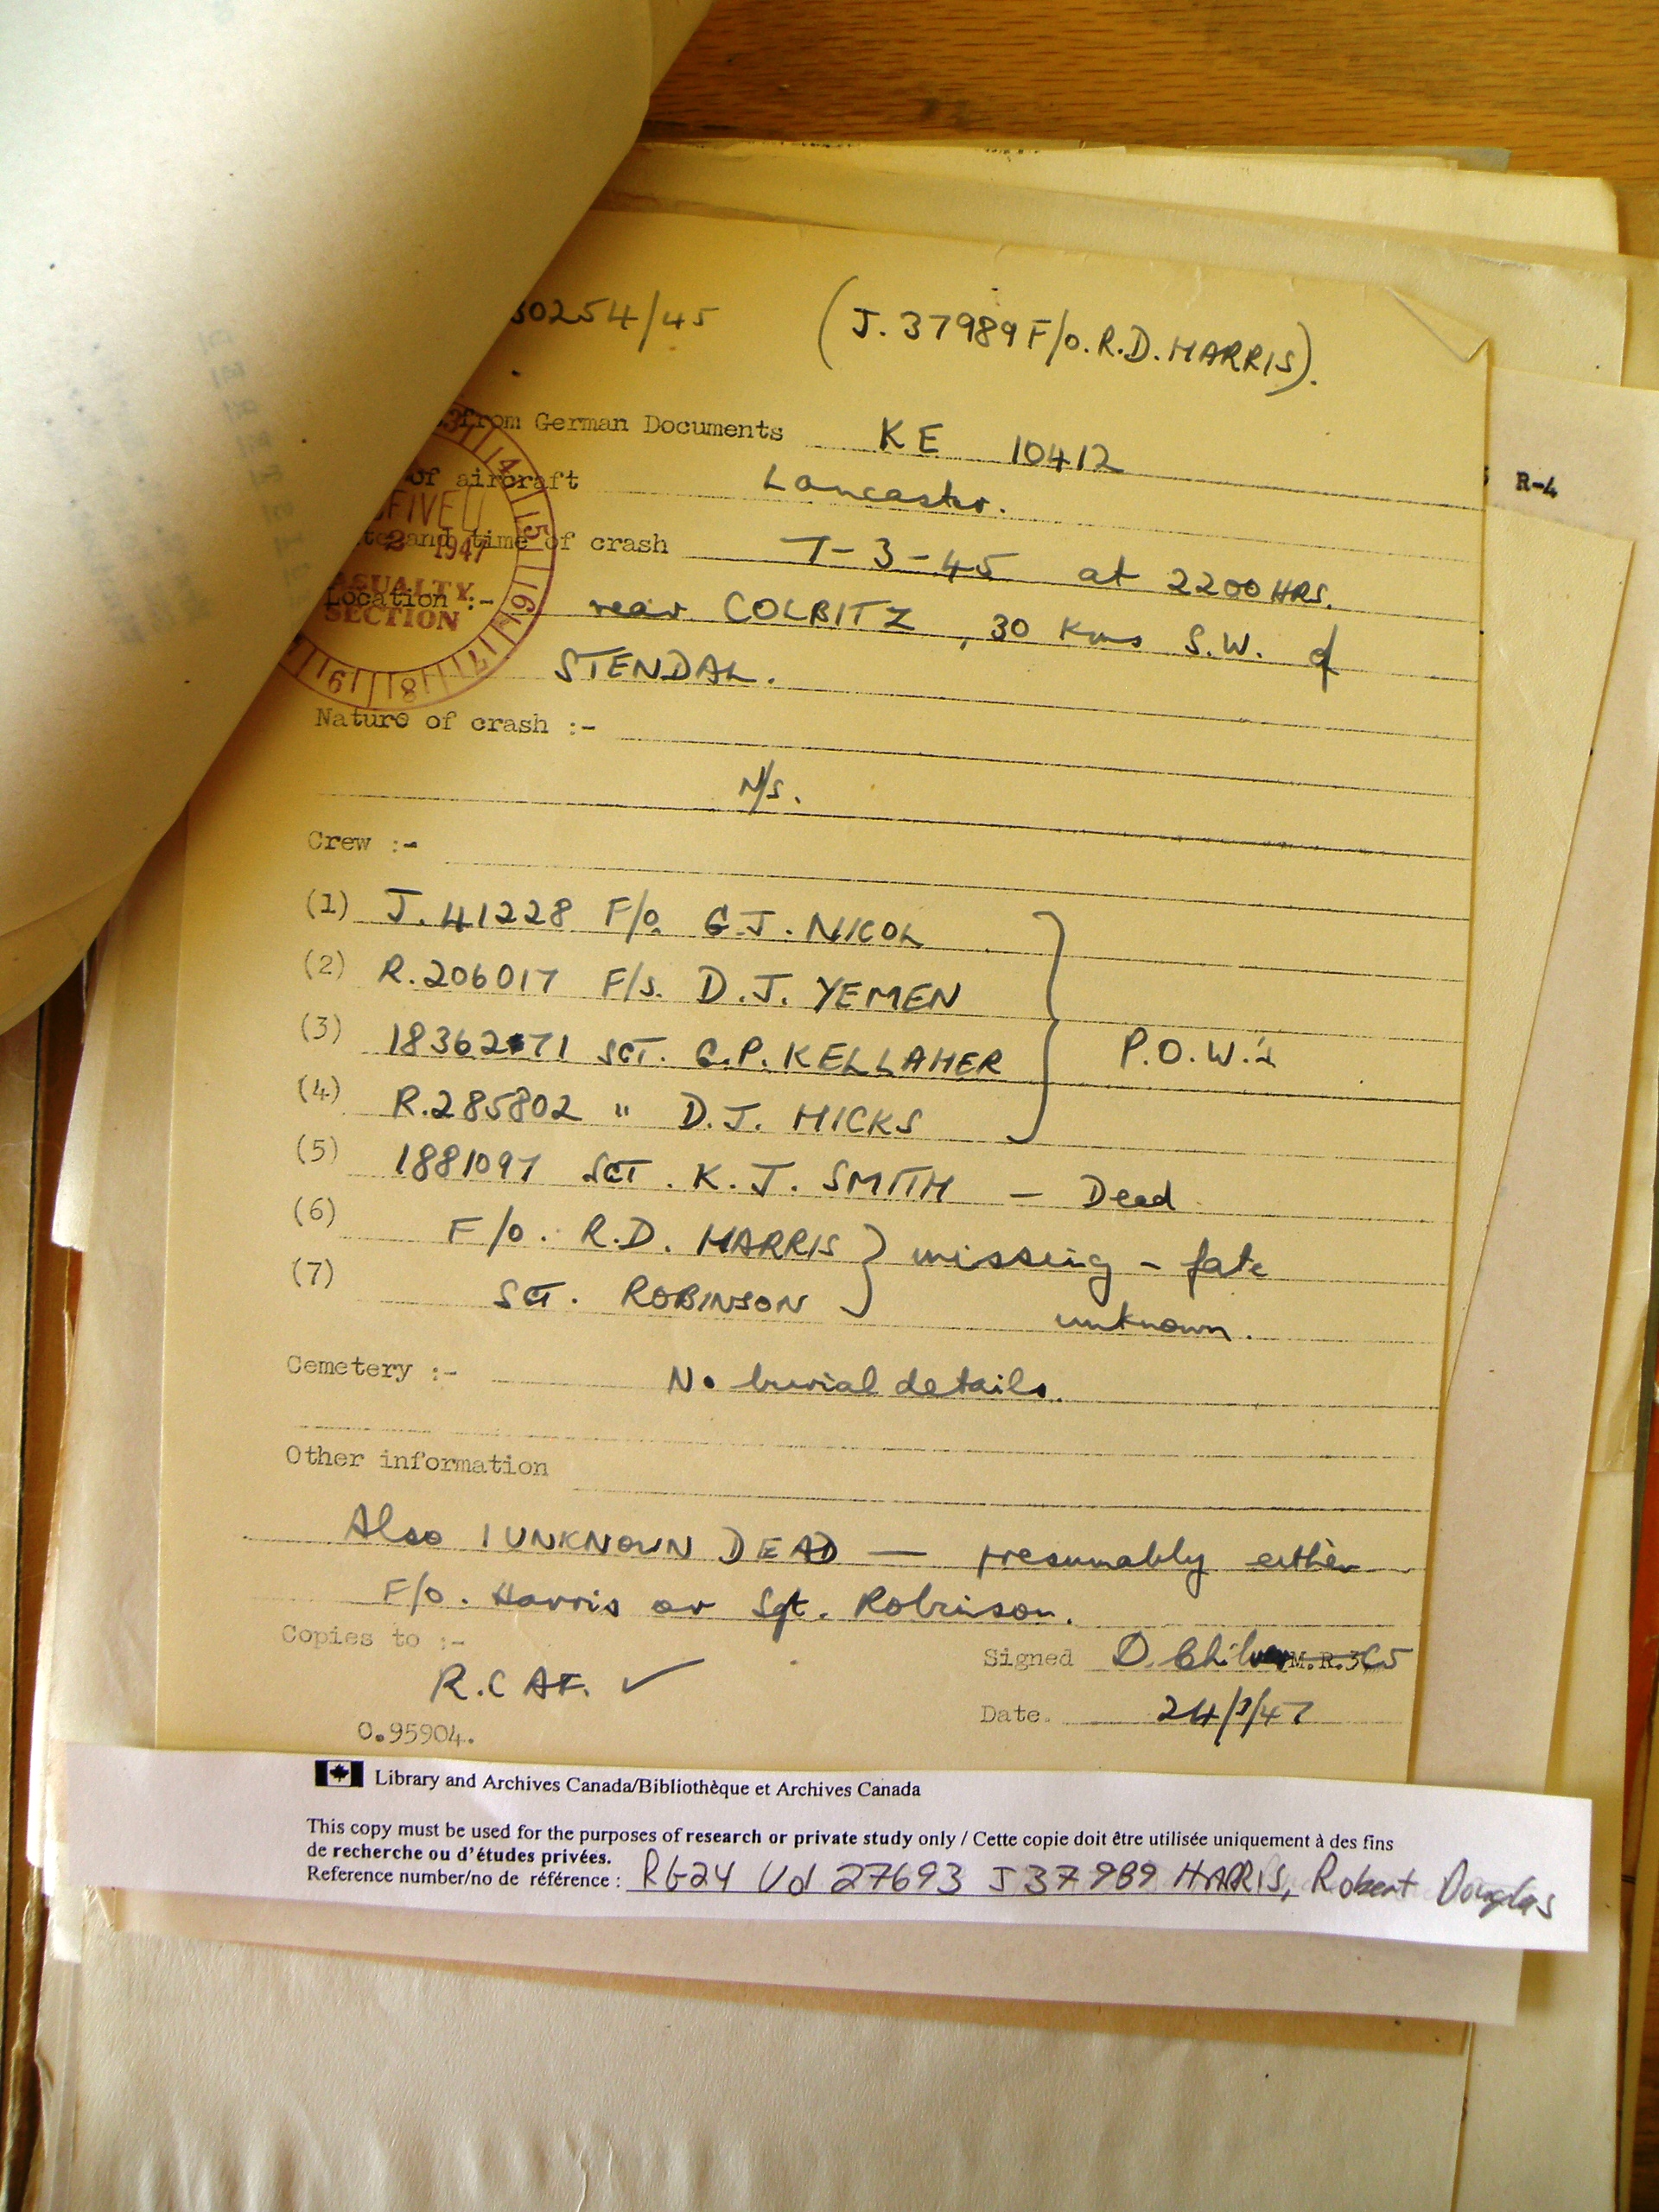 30254/45 (J.37989 F/O. R.D. HARRIS).
from German Documents KE 10412
of aircraft Lancaster.
and time of crash 7-3-45 at 2200 HRS.
Location :- near COLBITZ, 30 Kms S.W. of
STENDAL.
1947
CASUALTY
SECTION
Nature of crash :-
N/S.
Crew :-
(1) J.41228 F/O. G.J. NICOL
(2) R.206017 F/S. D.J. YEMEN
(3) 1836271 SGT. G.P. KELLAHER P.O.W.'s
(4) R.285802 " D.J. HICKS
(5) 1881097 SGT. K.J. SMITH - Dead
(6) F/O. R.D. HARRIS } missing - fate
(7) SGT. ROBINSON unknown.
Cemetery :- No burial details.
Other information
Also 1 UNKNOWN DEAD — presumably either
F/O. Harris or Sgt. Robinson.
Copies to :-
R.C.A.F. ✓
Signed D. M.R.3
Date. 24/3/47
O.95904.
R-4
Library and Archives Canada/Bibliothèque et Archives Canada
This copy must be used for the purposes of research or private study only / Cette copie doit être utilisée uniquement à des fins
de recherche ou d'études privées.
Reference number/no de référence : RG24 Vol 27693 J37989 HARRIS, Robert Douglas